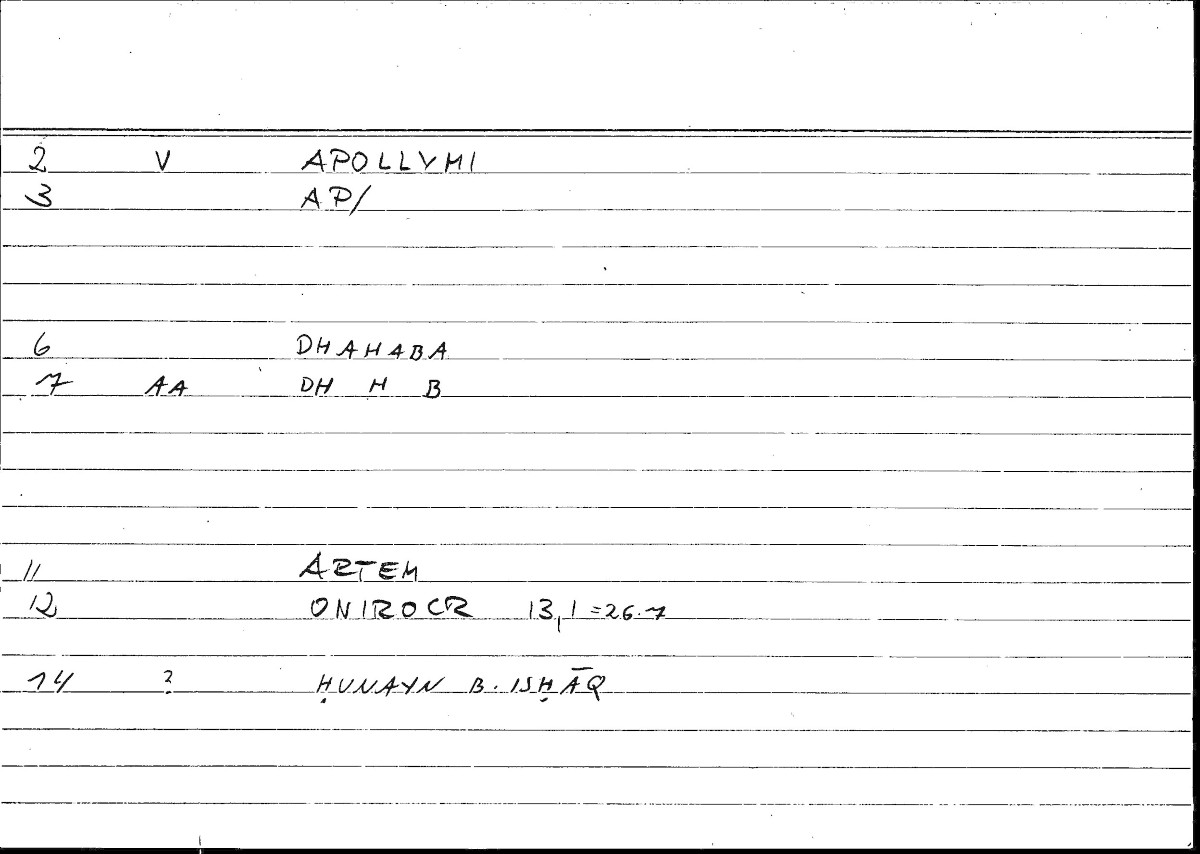 2 V APOLLYMI
3 AP/
6 DHAHABA
7 AA DH H B
11 ARTEM
12 ONIROCR 13,1=26.7
14 ? ḤUNAYN B. ISḤĀQ